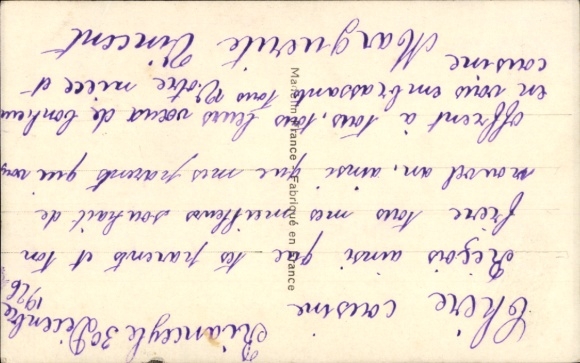 Riancey le 30 Décembre
1926
Chère cousine
Reçois ainsi que tes parents et ton
frère tous mes meilleurs souhait de
nouvel an, ainsi que mes parents qui vous
offrent à tous, tous leurs vœux de bonheur
en vous embrassant tous Votre nièce et
cousine Marguerite Vincent
Made in France - Fabriqué en France